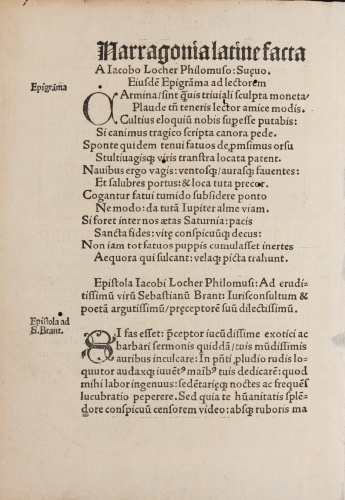 Narragonia latine facta
A Iacobo Locher Philomuso: Sueuo.
Eiusdē Epigrāma ad lectorem
Epigrāma
CArmina/sint q̃uis triuiali sculpta moneta/
Plaude tñ teneris lector amice modis.
Cultius eloquiū nobis supesse putabis:
Si canimus tragico scripta canora pede.
Sponte quidem tenui fatuos deprompsimus orsu
Stultiuagisq; viris transtra locata patent.
Nauibus ergo vagis: ventosq;/aurasq; fauentes:
Et salubres portus: & loca tuta precor.
Cogantur fatui tumido subsidere ponto
Ne modo: da tutā Iupiter alme viam.
Si foret inter nos ætas Saturnia: pacis
Sancta fides: vitę conspicuūq; decus:
Non iam tot fatuos puppis cumulasset inertes
Aequora qui sulcant: velaq; picta trahunt.
Epistola Iacobi Locher Philomusi: Ad erudi-
tissimū virū Sebastianū Brant: Iurisconsultum &
poetā argutissimū/pręceptorē suū dilectissimū.
Epistola ad
S. Brant.
SI fas esset: pręceptor iucūdissime exotici ac
barbari sermonis quiddā/tuis mūdissimis
auribus inculcare: In pñti pludio rudis lo-
quutor audaxq; iuuēt maibꝰ tuis dedicarē: quod
mihi labor ingenuus: sedētarięq; noctes ac frequēs
lucubratio peperere. Sed quia te hūanitatis splē-
dore conspicuū censorem video: absq; ruboris ma